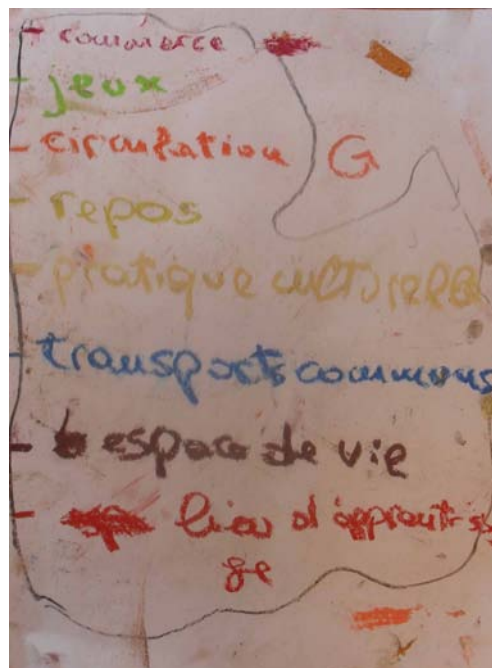 - commerce
- jeux
- circulation G
- repos
- pratique culturelle
- transports communs
- espace de vie
- lieu d'apprentissa
ge